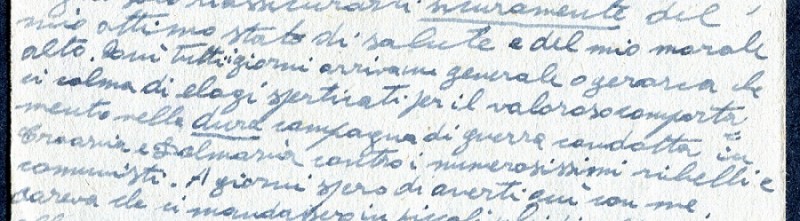 rassicurarti sicuramente del
mio ottimo stato di salute e del mio morale
alto. Qui tutti i giorni arrivano generale o gerarca che
ci colma di elogi sperticati per il valoroso comporta
mento nella dura campagna di guerra condotta in
Croazia e Dalmazia contro i numerosissimi ribelli e
comunisti. A giorni spero di averti qui con me.
pareva che ci mandassero in piccoli